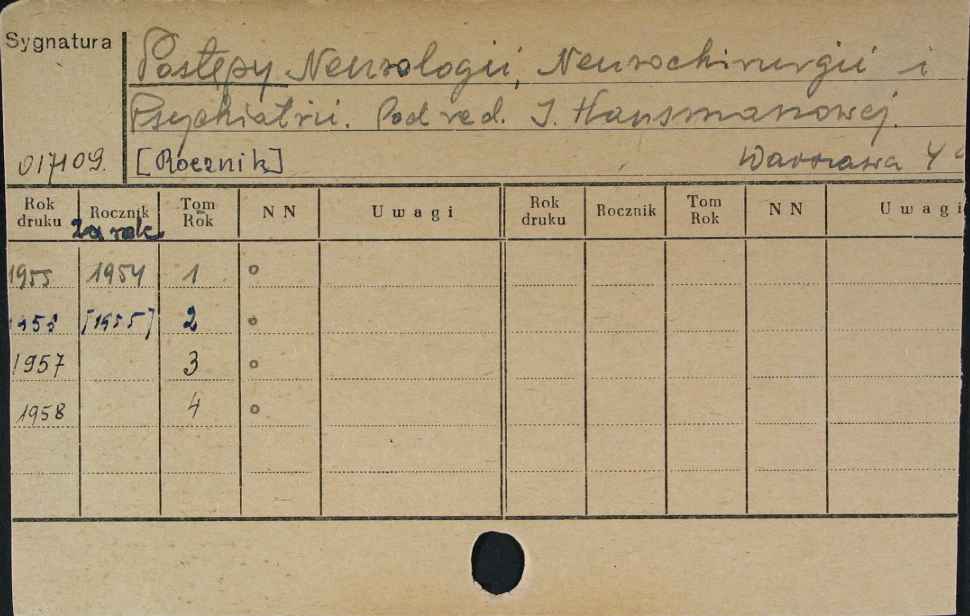 Sygnatura
Postępy Neurologii, Neurochirurgii i
Psychiatrii. Pod red. I. Hausmanowej.
017109. [Rocznik] Warszawa 4°
Rok druku Rocznik za rok Tom Rok NN Uwagi Rok druku Rocznik Tom Rok NN Uwagi
1955 1954 1 o
[1955] 2 o
1957 3 o
1958 4 o